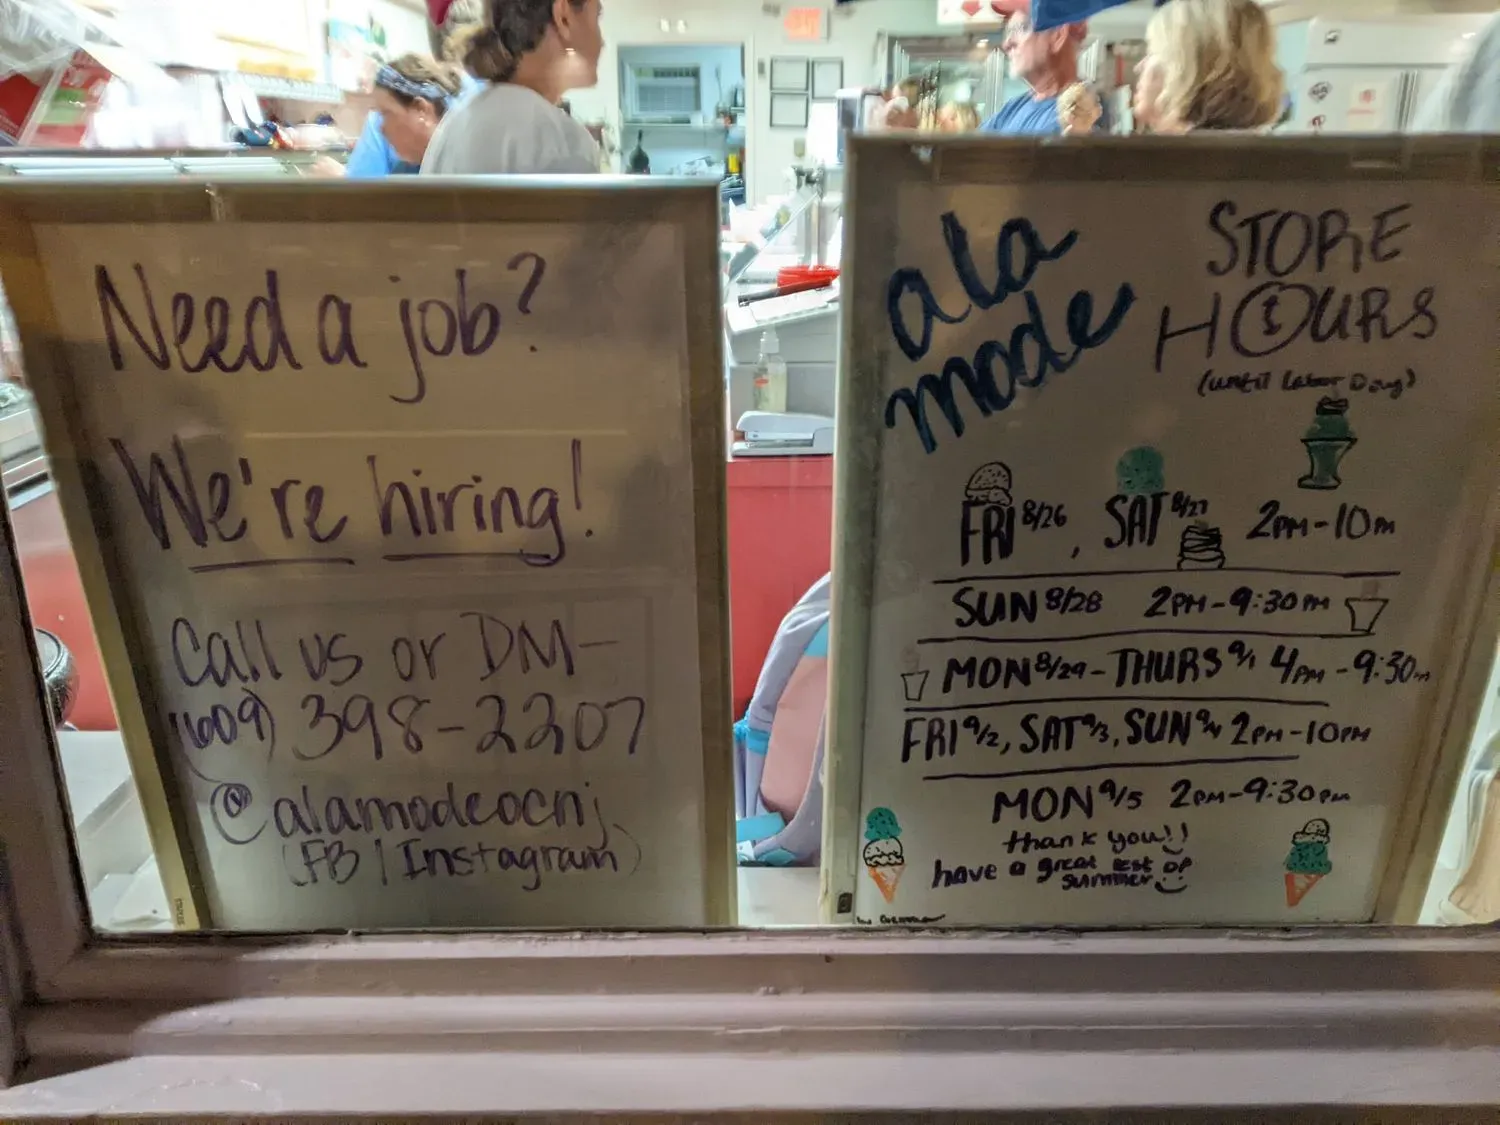 Need a job?
We're hiring!
Call us or DM-
(609) 398-2207
@alamodeocnj
(FB | Instagram)
a la
mode
STORE
HOURS
(until Labor Day)
FRI 8/26, SAT 8/27 2PM-10PM
SUN 8/28 2PM-9:30PM
MON 8/29-THURS 9/1 4PM-9:30PM
FRI 9/2, SAT 9/3, SUN 9/4 2PM-10PM
MON 9/5 2PM-9:30PM
thank you!!
have a great rest of
summer
EXIT